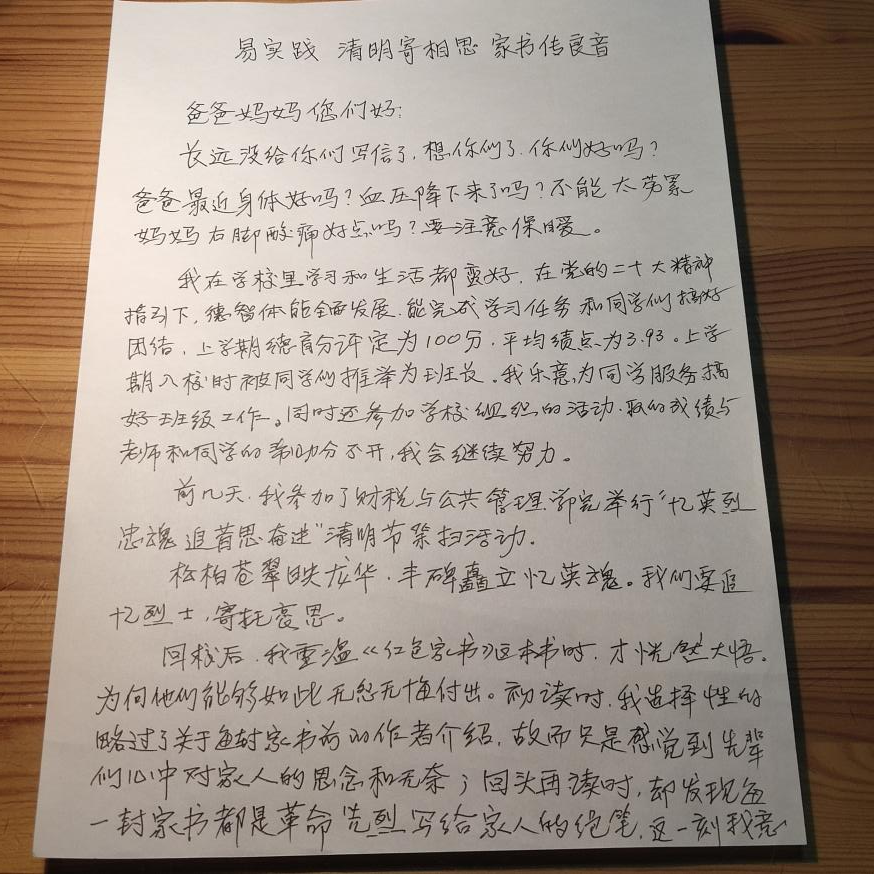 易实践 清明寄相思 家书传良音
爸爸妈妈您们好:
长远没给你们写信了,想你们了.你们好吗?
爸爸最近身体好吗?血压降下来了吗?不能太劳累
妈妈右脚酸痛好点吗?要注意保暖。
我在学校里学习和生活都蛮好,在党的二十大精神
指引下,德智体能全面发展.能完成学习任务和同学们搞好
团结,上学期德育分评定为100分,平均绩点为3.93.上学
期入校时被同学们推举为班长。我乐意为同学服务搞
好班级工作。同时还参加学校组织的活动.取的成绩与
老师和同学的帮助分不开,我会继续努力。
前几天.我参加了财税与公共管理学院举行"忆英烈
忠魂 追昔思奋进"清明节祭扫活动.
松柏苍翠映龙华.丰碑矗立忆英魂。我们要追
忆烈士,寄托哀思。
回校后.我重温《红色家书》这本书时.才恍然大悟.
为何他们能够如此无怨无悔付出。初读时.我选择性的
略过了关于每封家书前的作者介绍,故而只是感觉到先辈
们心中对家人的思念和无奈;回头再读时,却发现每
一封家书都是革命先烈写给家人的绝笔,这一刻我竟